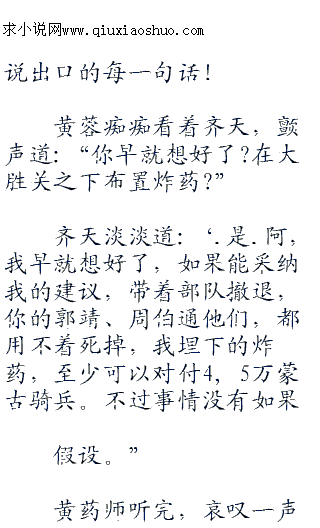 求小说网www.qiuxiaoshuo.com
说出口的每一句话！
黄蓉痴痴看着齐天，颤
声道：“你早就想好了?在大
胜关之下布置炸药?”
齐天淡淡道：‘.是.阿，
我早就想好了，如果能采纳
我的建议，带着部队撤退，
你的郭靖、周伯通他们，都
用不着死掉，我埋下的炸
药，至少可以对付4，5万蒙
古骑兵。不过事情没有如果
假设。”
黄药师听完，哀叹一声